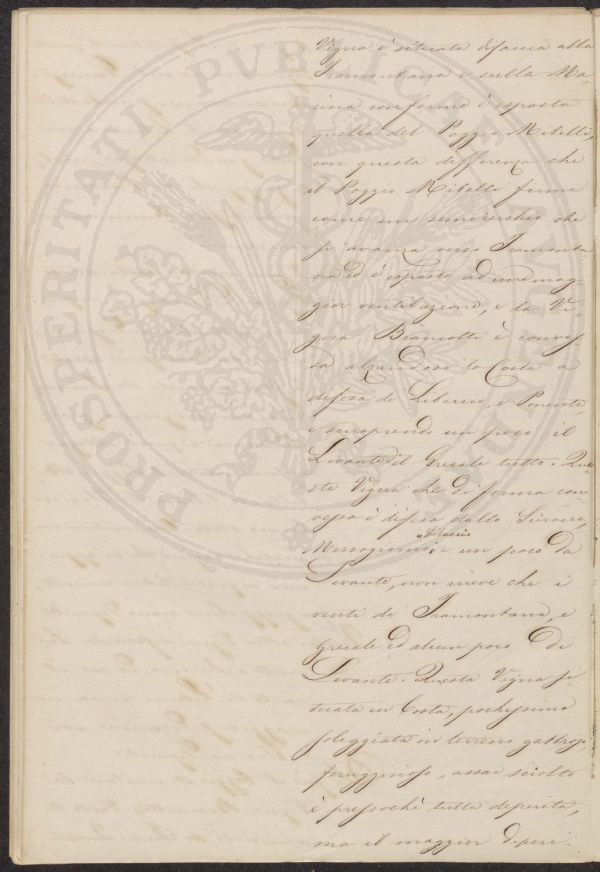 Vigna è situata difaccia alla
Tramontana e sulla Ma-
rina conforme è esposta
quella del Poggio Mibelli,
con questa differenza che
il Poggio Mibelli forma
come un semicerchio che
si avanza verso Tramonta-
na ed è esposto ad una mag-
gior ventilazione, e la Vi-
gna Biancotti è conves-
sa alzandosi la Costa a
difesa di Libeccio, e Ponente,
e scuoprendo un poco il
Levante ed il Grecale tutto. Que
sta Vigna che di forma con
vessa è difesa dallo Sirocco,
Mezzogiorno, e un poco da
Levante, non riceve che i
venti di Tramontana, e
Grecale ed alcun poco di
Levante. Questa Vigna si-
tuata in Costa, pochissimo
soleggiata in terreno galestro-
ferruginoso, assai sciolto
è pressochè tutta deperita,
ma il maggior deperi-
PROSPERITATI PUBLICAE